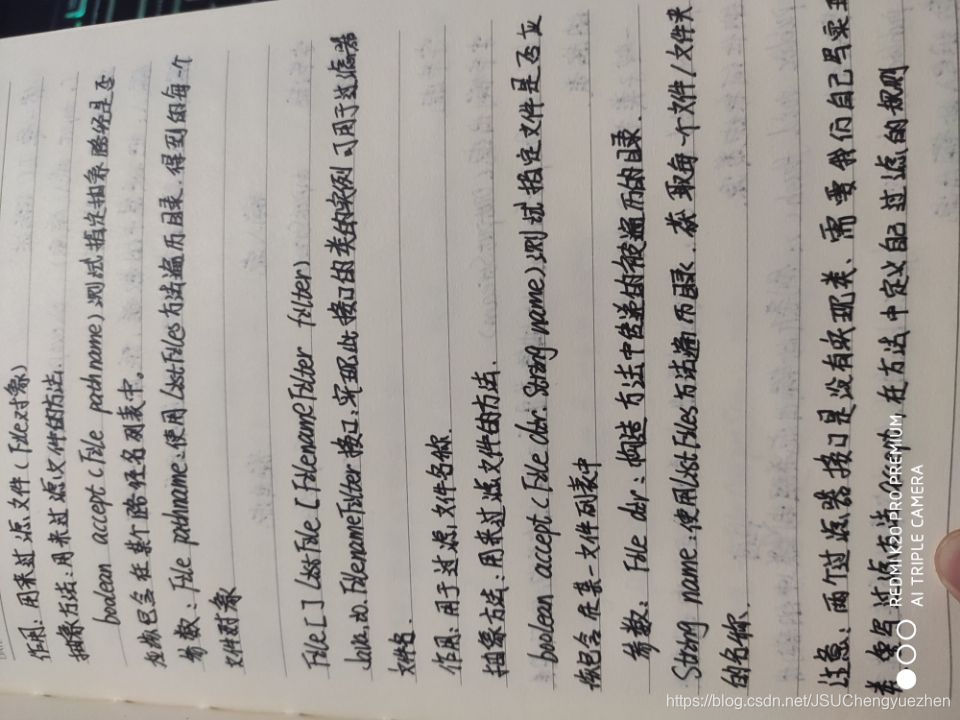 作用：用来过滤文件（File对象）
抽象方法：用来过滤文件的方法.
boolean accept (File pathname) 测试指定抽象路径是否
应该包含在某个路径名列表中。
参数：File pathname：使用ListFiles方法遍历目录，得到的每一个
文件对象
File[] listFile [FilenameFilter filter)
Java.io.FilenameFilter接口：实现此接口的类的实例可用于过滤器
文件名.
作用：用于过滤文件名称.
抽象方法：用来过滤文件的方法.
boolean accept (File dir. String name) 测试指定文件是否应
该包含在某一文件列表中
参数：File dir：构造方法中传递的被遍历的目录.
String name：使用ListFiles方法遍历目录. 获取每一个文件/文件夹
的名称
注意：两个过滤器接口是没有实现类、需要我们自己写实现
类 重写过滤方法 在方法中定义自己过滤的规则
REDMI K20 PRO PREMIUM
AI TRIPLE CAMERA
https://blog.csdn.net/JSUChengyuezhen